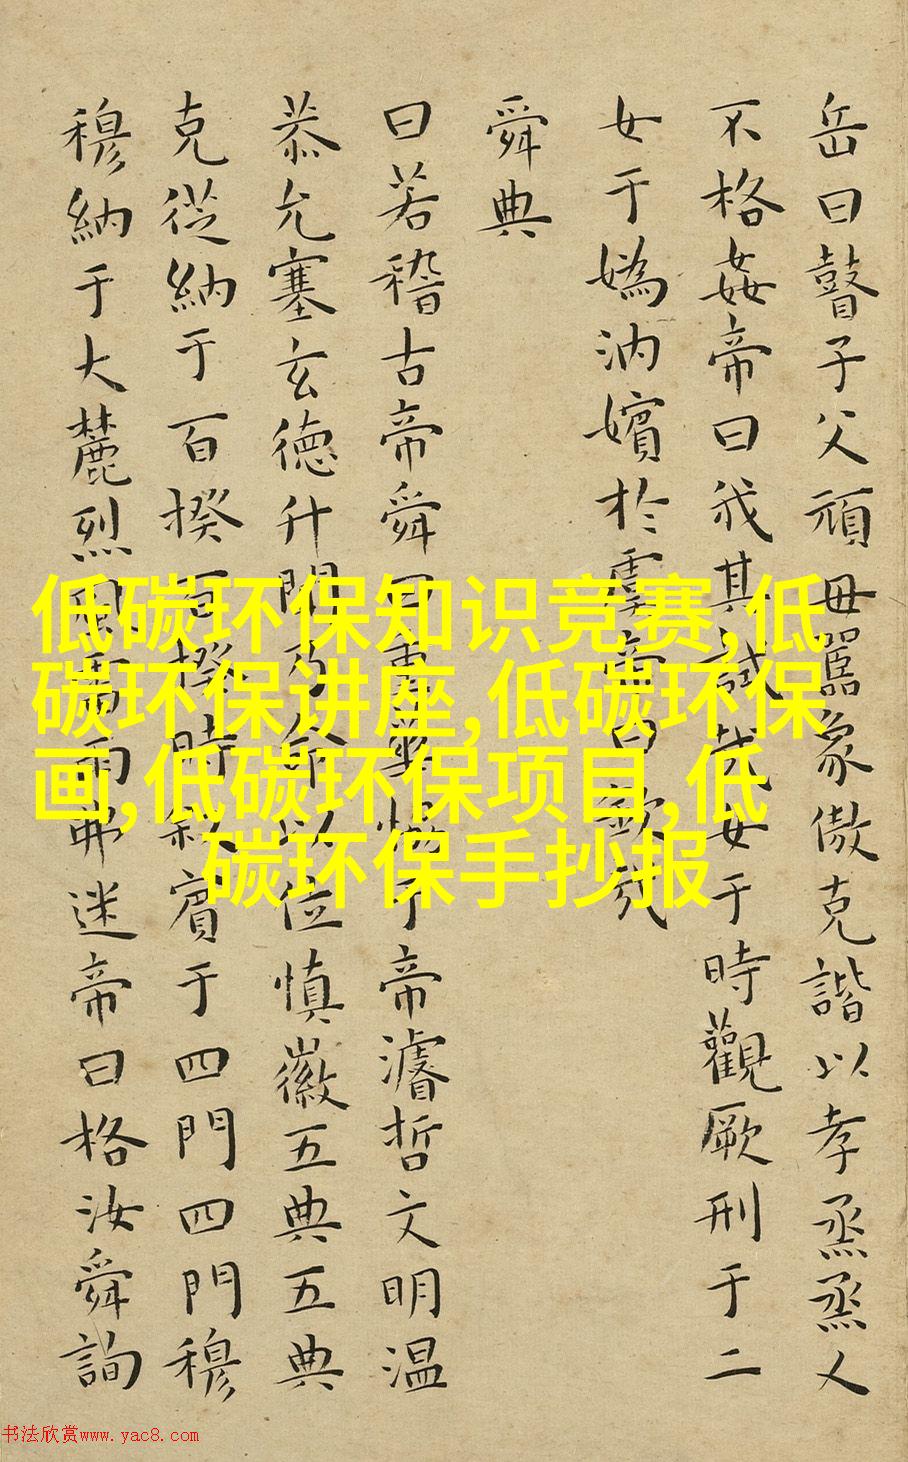 岳曰瞽子父頑母嚚象傲克諧以孝烝烝乂
不格姦帝曰我其試哉女于時觀厥刑于二
女于媯汭嬪於虞帝曰欽哉
舜典
曰若稽古帝舜曰重華協于帝濬哲文明温
恭允塞玄徳升聞乃命以位慎徽五典五典
克從納于百揆百揆時敘賓于四門四門穆
穆納于大麓烈風雷雨弗迷帝曰格汝舜詢
低碳环保知识竞赛,低
碳环保讲座,低碳环保
画,低碳环保项目,低
碳环保手抄报
书法欣赏www.yac8.com